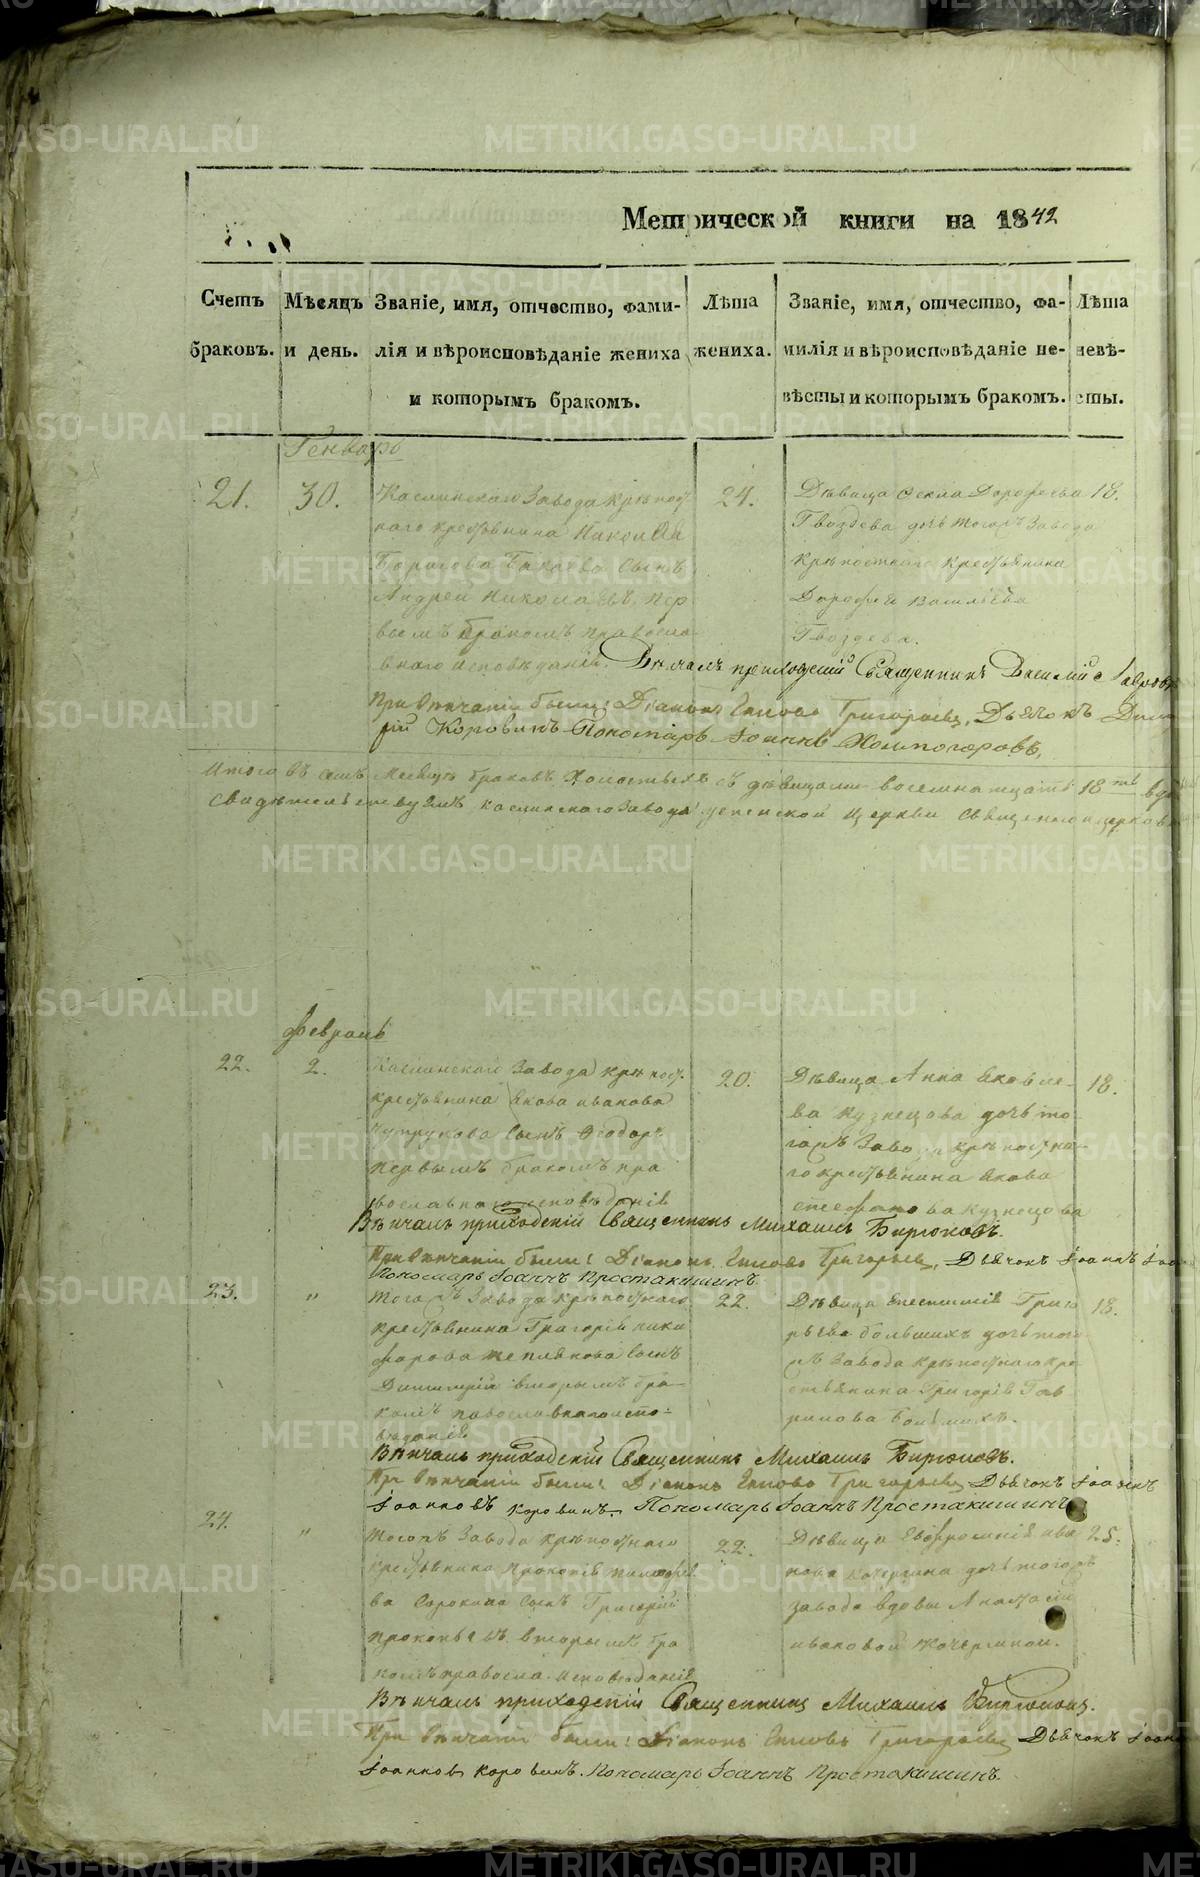 Метрической книги на 1842
Счетъ браковъ.
Мѣсяцъ и день.
Званіе, имя, отчество, фами-
лія и вѣроисповѣданіе жениха
и которымъ бракомъ.
Лѣта
жениха.
Званіе, имя, отчество, фа-
милія и вѣроисповѣданіе не-
вѣсты и которымъ бракомъ.
Лѣта
невѣ-
сты.
Генварь
21.
30.
Каслинскаго Завода крѣпост
наго крестьянина Николая
Борисова сынъ
Андрей Николаевъ, пер
вымъ бракомъ правосла-
внаго исповѣданія.
24.
Дѣвица Фекла Дорофеева
Гвоздева дочь тогожъ Завода
крѣпостнаго крестьянина
Дорофея Васильева
Гвоздева.
18.
Вѣнчалъ приходскій Священникъ Василій
При вѣнчаніи были: Діаконъ Григорьевъ, Дьячокъ
Коровинъ Пономарь Іоаннъ Холмогоровъ,
Итого въ семъ Месяцѣ браковъ Холостыхъ съ дѣвицами восемнатцать 18ть
Свидѣтельствуемъ Каслинскаго Завода Успенской Церкви
Февраль
22.
2.
Каслинскаго Завода крѣпост.
крестьянина Якова Иванова
сынъ Феодоръ
первымъ бракомъ пра
вославнаго исповѣданія
20.
Дѣвица Анна Яковле-
ва Кузнецова дочь то-
гожъ Завода крѣпостна-
го крестьянина Якова
Стефанова Кузнецова
18.
Вѣнчалъ приходскій Священникъ Михаилъ Бирюковъ.
При вѣнчаніи были: Діаконъ Григорьевъ, Дьячокъ Іоаннъ
Пономарь Іоаннъ Простакишинъ.
23.
"
Тогожъ Завода крѣпостнаго
крестьянина Григорія Ники
форова сынъ
Димитрій вторымъ бра-
комъ павославнаго испо-
вѣданія
22.
Дѣвица Григо
рьева Большихъ дочь того
жъ Завода крѣпостнаго кре
стьянина Григорія Гав
рилова Большихъ.
18.
Вѣнчалъ приходскій Священникъ Михаилъ Бирюковъ.
При вѣнчаніи были: Діаконъ Григорьевъ Дьячокъ Іоаннъ
Іоанновъ Коровинъ. Пономарь Іоаннъ Простакишинъ
24.
"
Тогожъ Завода крѣпостнаго
крестьянина Прокопія Тимофее
ва Сорокина сынъ Григорій
Прокопьевъ вторымъ бра
комъ правосла. исповѣданія
22.
Дѣвица Евфросинія Ива
нова Кочергина дочь тогожъ
завода вдовы Анастасіи
Ивановой Кочергиной.
25.
Вѣнчалъ приходскій Священникъ Михаилъ Бирюковъ.
При вѣнчаніи были: Діаконъ Григорьевъ Дьячокъ
Іоанновъ Коровинъ. Пономарь Іоаннъ Простакишинъ.
METRIKI.GASO-URAL.RU